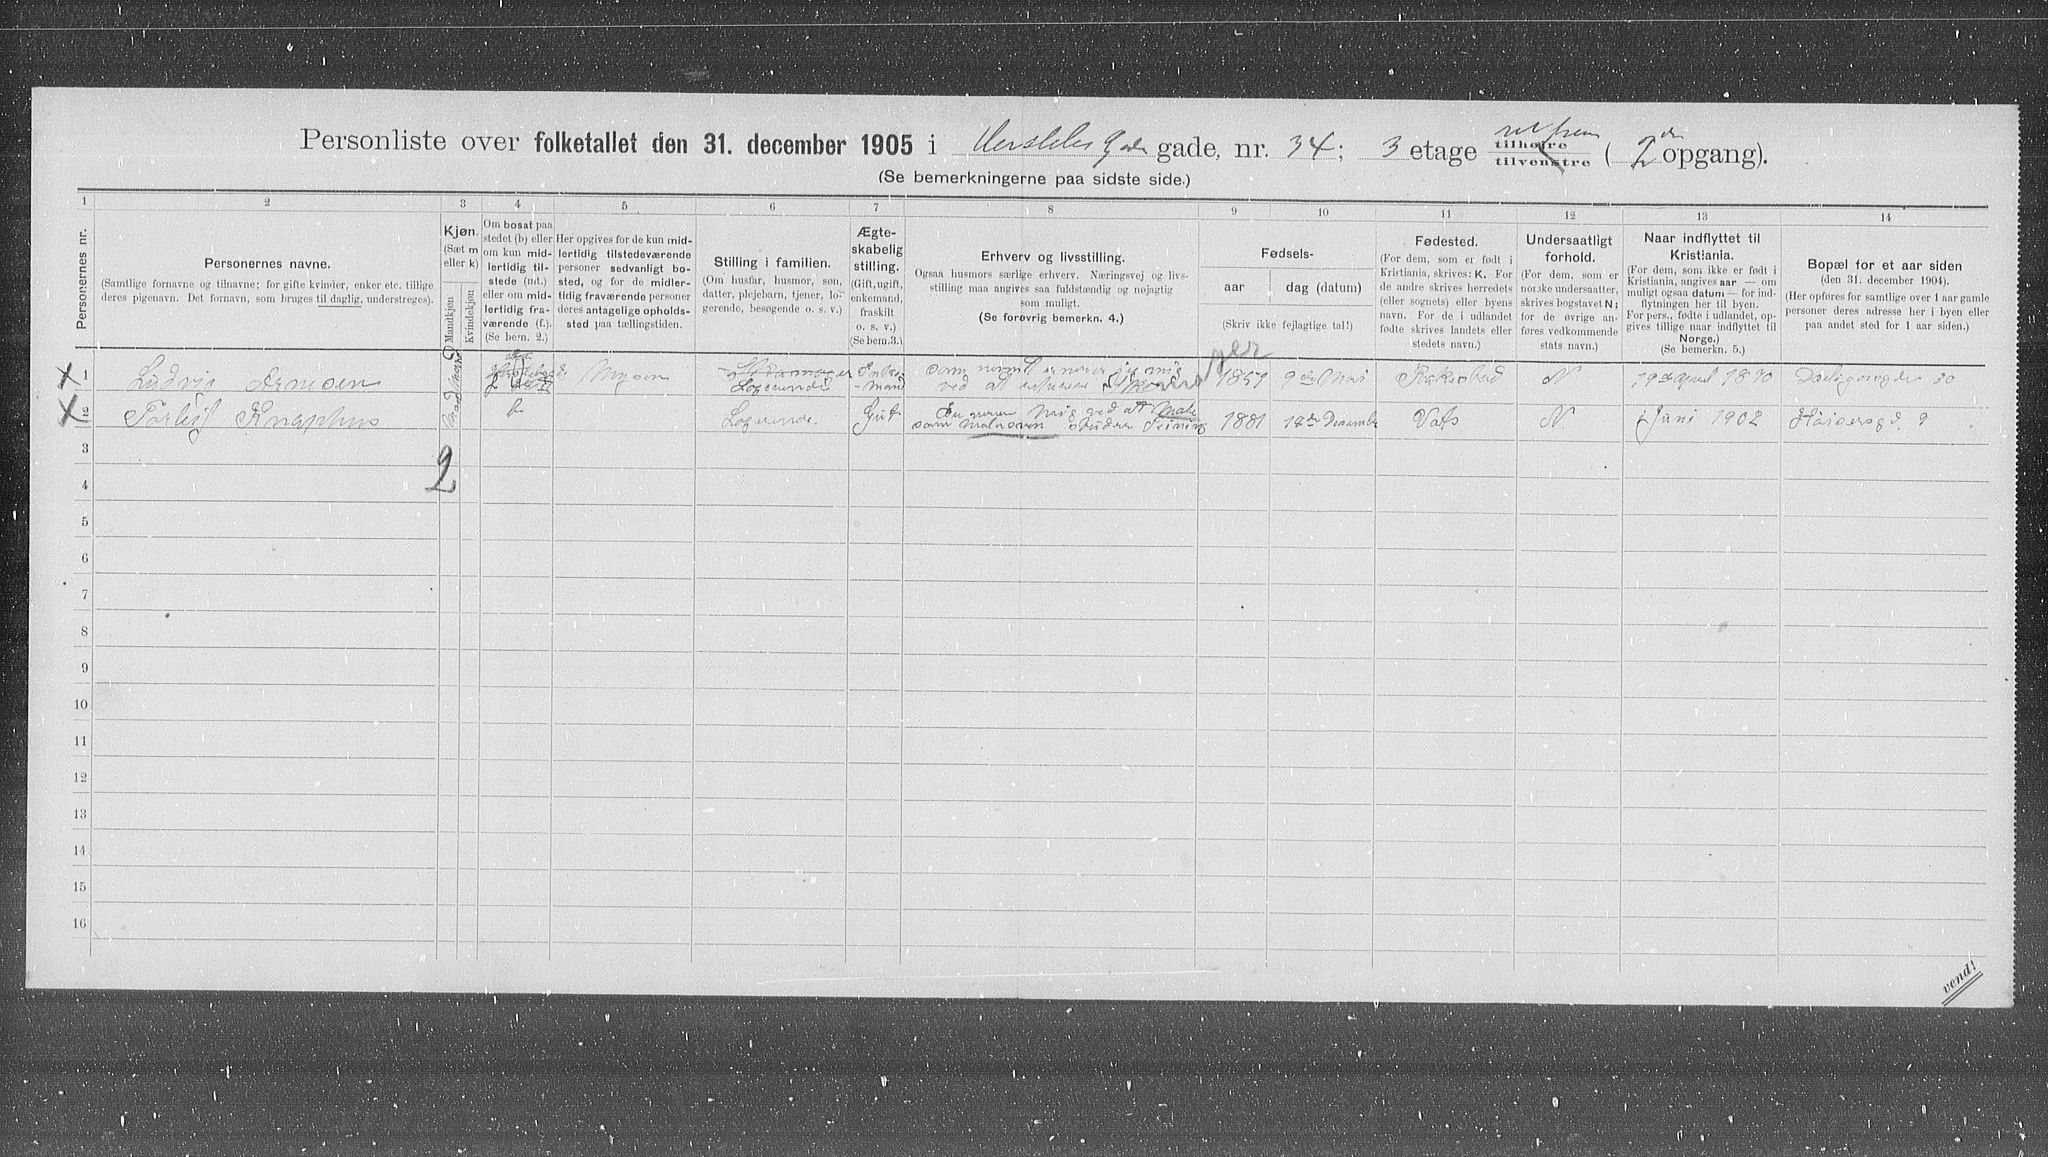 Personliste over folketallet den 31. december 1905 i Herslebs Gade gade, nr. 34; 3 etage ret frem tilhøire tilvenstre ( 2den opgang).
(Se bemerkningerne paa sidste side.)
1 2 3 4 5 6 7 8 9 10 11 12 13 14
Personernes nr.
Personernes navne.
(Samtlige fornavne og tilnavne; for gifte kvinder, enker etc. tillige
deres pigenavn. Det fornavn, som bruges til daglig, understreges).
Kjøn.
(Sæt m
eller k)
Mandkjøn
Kvindekjøn
Om bosat paa
stedet (b) eller
om kun mid-
lertidig til-
stede (mt.)
eller om mid-
lertidig fra-
værende (f.).
(Se bem. 2.)
Her opgives for de kun mid-
lertidig tilstedeværende
personer sedvanligt bo-
sted, og for de midler-
tidig fraværende personer
deres antagelige opholds-
sted paa tællingstiden.
Stilling i familien.
(Om husfar, husmor, søn,
datter, plejebarn, tjener, lo-
gerende, besøgende o. s. v.)
Ægte-
skabelig
stilling.
(Gift, ugift,
enkemand,
fraskilt
o. s. v.)
(Se bem.3.)
Erhverv og livsstilling.
Ogsaa husmors særlige erhverv. Næringsvej og livs-
stilling maa angives saa fuldstændig og nøjagtig
som muligt.
(Se forøvrig bemerkn. 4.)
Fødsels-
aar
dag (datum)
(Skriv ikke fejlagtige tal!)
Fødested.
(For dem, som er født i
Kristiania, skrives: K. For
de andre skrives herredets
(eller sognets) eller byens
navn. For de i udlandet
fødte skrives landets eller
stedets navn.)
Undersaatligt
forhold.
(For dem, som er
norske undersaatter,
skrives bogstavet N;
for de øvrige an-
føres vedkommende
stats navn.)
Naar indflyttet til
Kristiania.
(For dem, som ikke er født i
Kristiania, angives aar — om
muligt ogsaa datum — for ind-
flytningen her til byen.
For pers., fødte i udlandet, op-
gives tillige naar indflyttet til
Norge.)
(Se bemerkn. 5.)
Bopæl for et aar siden
(den 31. december 1904).
(Her opføres for samtlige over 1 aar gamle
personer deres adresse her i byen eller
paa andet sted for 1 aar siden.)
1 Ludvig Arnesen Mysen Logerende Enke-mand 9de Mai N 19de april 1870 30
2 Torleif Knaphus b Logerende Gift som Malersven 1881 14de December Vats N. Juni 1902 9
2
3
4
5
6
7
8
9
10
11
12
13
14
15
16
vend!